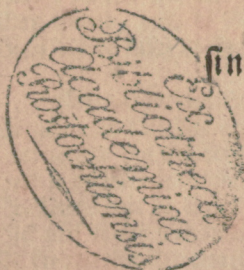 sin
Ex
Bibliotheca
academiae
Rostochiensis